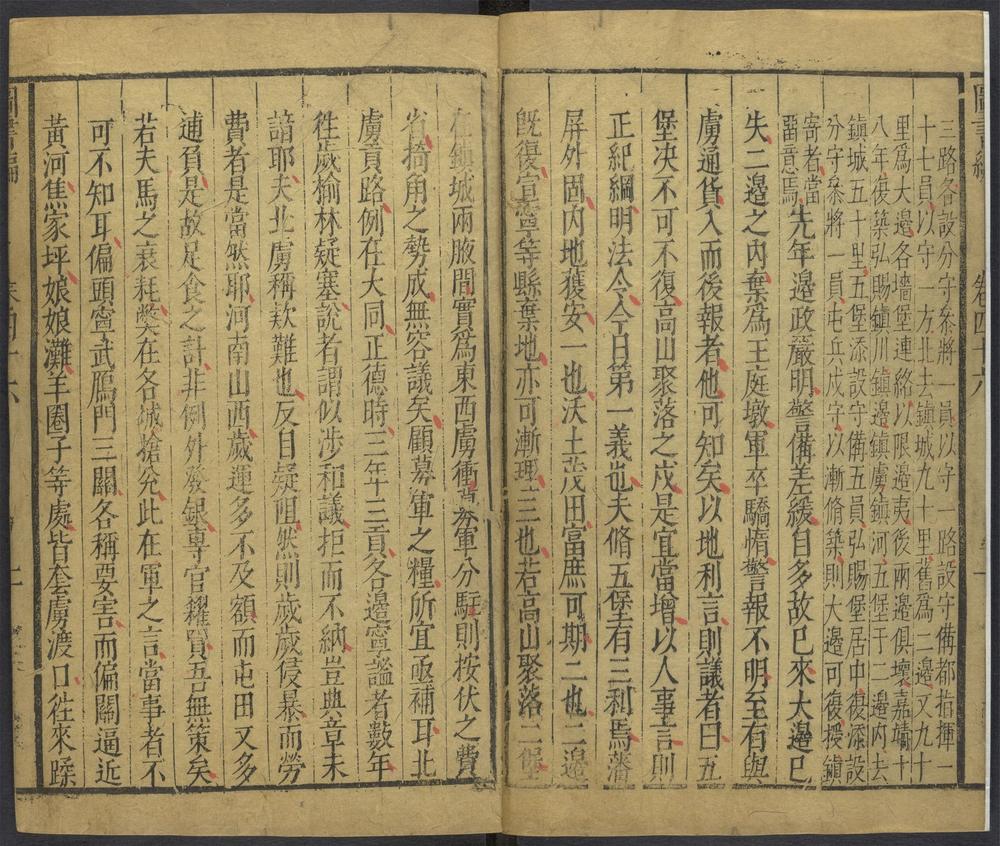 圖書編
卷四十六
三路各設分守參將一員以守一路設守備都指揮一
十七員以守一方北去鎮城九十里舊爲二邊又九十
里爲大邊各墻堡連絡以限邊夷後兩邊俱壞嘉靖十
八年復築弘賜鎮川鎮邊鎮虜鎮河五堡于二邊內去
鎮城五十里五堡添設守備五員弘賜堡居中復添設
分守參將一員屯兵戍守以漸脩築則大邊可復授鎮
寄者當
留意焉
先年邊政嚴明警備差緩自多故已來大邊已
失二邊之內棄爲王庭墩軍卒驕惰警報不明至有與
虜通貨入而後報者他可知矣以地利言則議者曰五
堡決不可不復高山聚落之戍是宜當增以人事言則
正紀綱明法令今日第一義也夫脩五堡有三利焉藩
屏外固內地獲安一也沃土茂田富庶可期二也二邊
旣復宣寧等縣棄地亦可漸理三也若高山聚落二堡
在鎮城兩腋間實爲東西虜衝 軍分駐則按伏之費
省掎角之勢成無容議矣顧募軍之糧所宜亟補耳北
虜貢路例在大同正德時三年十三貢各邊寧謐者數年
徃歲榆林疑塞說者謂似涉和議拒而不納豈典章未
諳耶夫北虜稱欵難也反自疑阻然則歲歲侵暴而勞
費者是當然耶河南山西歲運多不及額而屯田又多
逋負是故足食之計非例外發銀專官糴買吾無策矣
若夫馬之衰耗弊在各城搶兌此在軍之言當事者不
可不知耳偏頭寧武鴈門三關各稱要害而偏關逼近
黃河焦家坪娘娘灘羊圈子等處皆套虜渡口徃來蹂